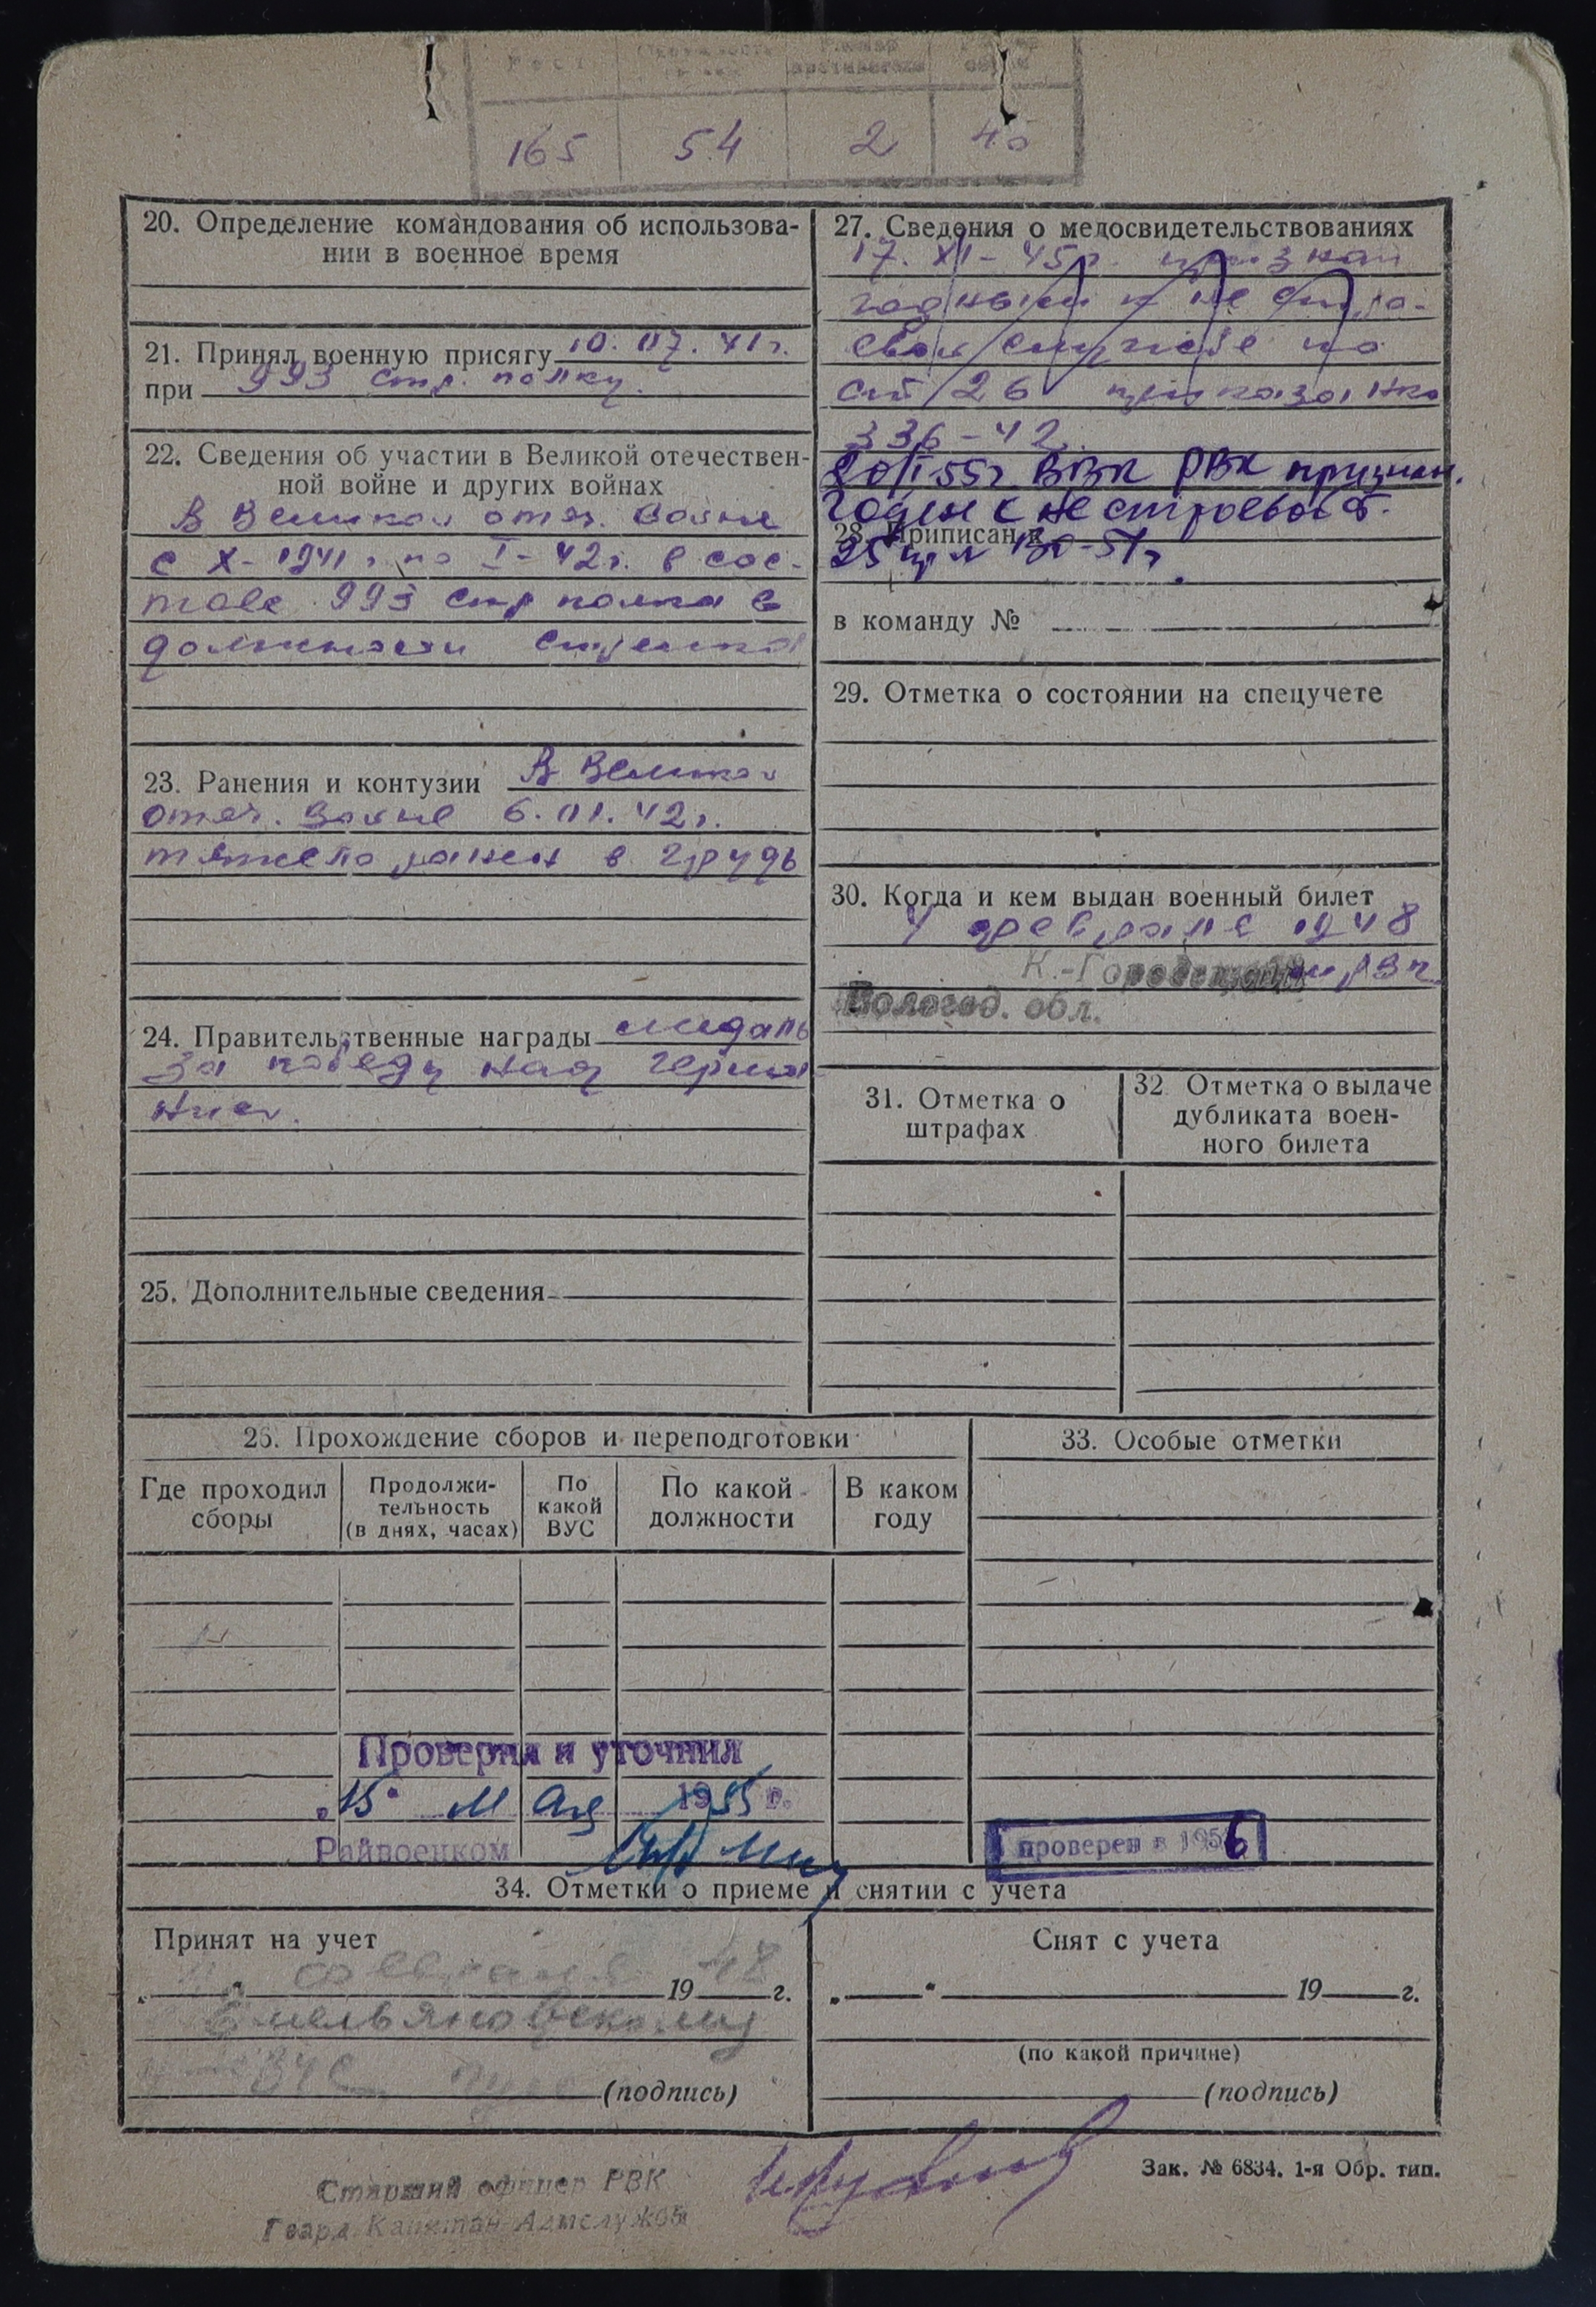 Рост
165 54 2
20. Определение командования об использова-
нии в военное время
21. Принял военную присягу 10.07.41г.
при 993 стр. полку.
22. Сведения об участии в Великой отечествен-
ной войне и других войнах
В Великой отеч. войне
с X-1941 г. по I-42г. в сос-
таве 993 стр полка в
должности стрелка
23. Ранения и контузии В Великой
отеч. войне 6.01.42г.
тяжело ранен в грудь
24. Правительственные награды медаль
За победу над Герма
нией.
25. Дополнительные сведения
27. Сведения о медосвидетельствованиях
17. XI-45г. признан
годным к не строе-
вой службе по
ст 26 приказа нко
336-42.
20/I 55г ВВК РВК признан.
годен к не строевой ст.
28. Приписан к
25 пр. 130-51г.
в команду №
29. Отметка о состоянии на спецучете
30. Когда и кем выдан военный билет
4 февраля 1948
К.-Городецким рвк
Вологод. обл.
31. Отметка о
штрафах
32 Отметка о выдаче
дубликата воен-
ного билета
26. Прохождение сборов и переподготовки
Где проходил
сборы
Продолжи-
тельность
(в днях, часах)
По
какой
ВУС
По какой
должности
В каком
году
33. Особые отметки
Проверил и уточнил
„15" мая 1955 г.
Райвоенком
проверен в 1956
34. Отметки о приеме и снятии с учета
Принят на учет
„ " февраля 1948 г.
Емельяновскому
ВУС
(подпись)
Снят с учета
„ " 19 г.
(по какой причине)
(подпись)
Старший офицер РВК
Гвард. Капитан Адмслужбы
Зак. № 6834. 1-я Обр. тип.